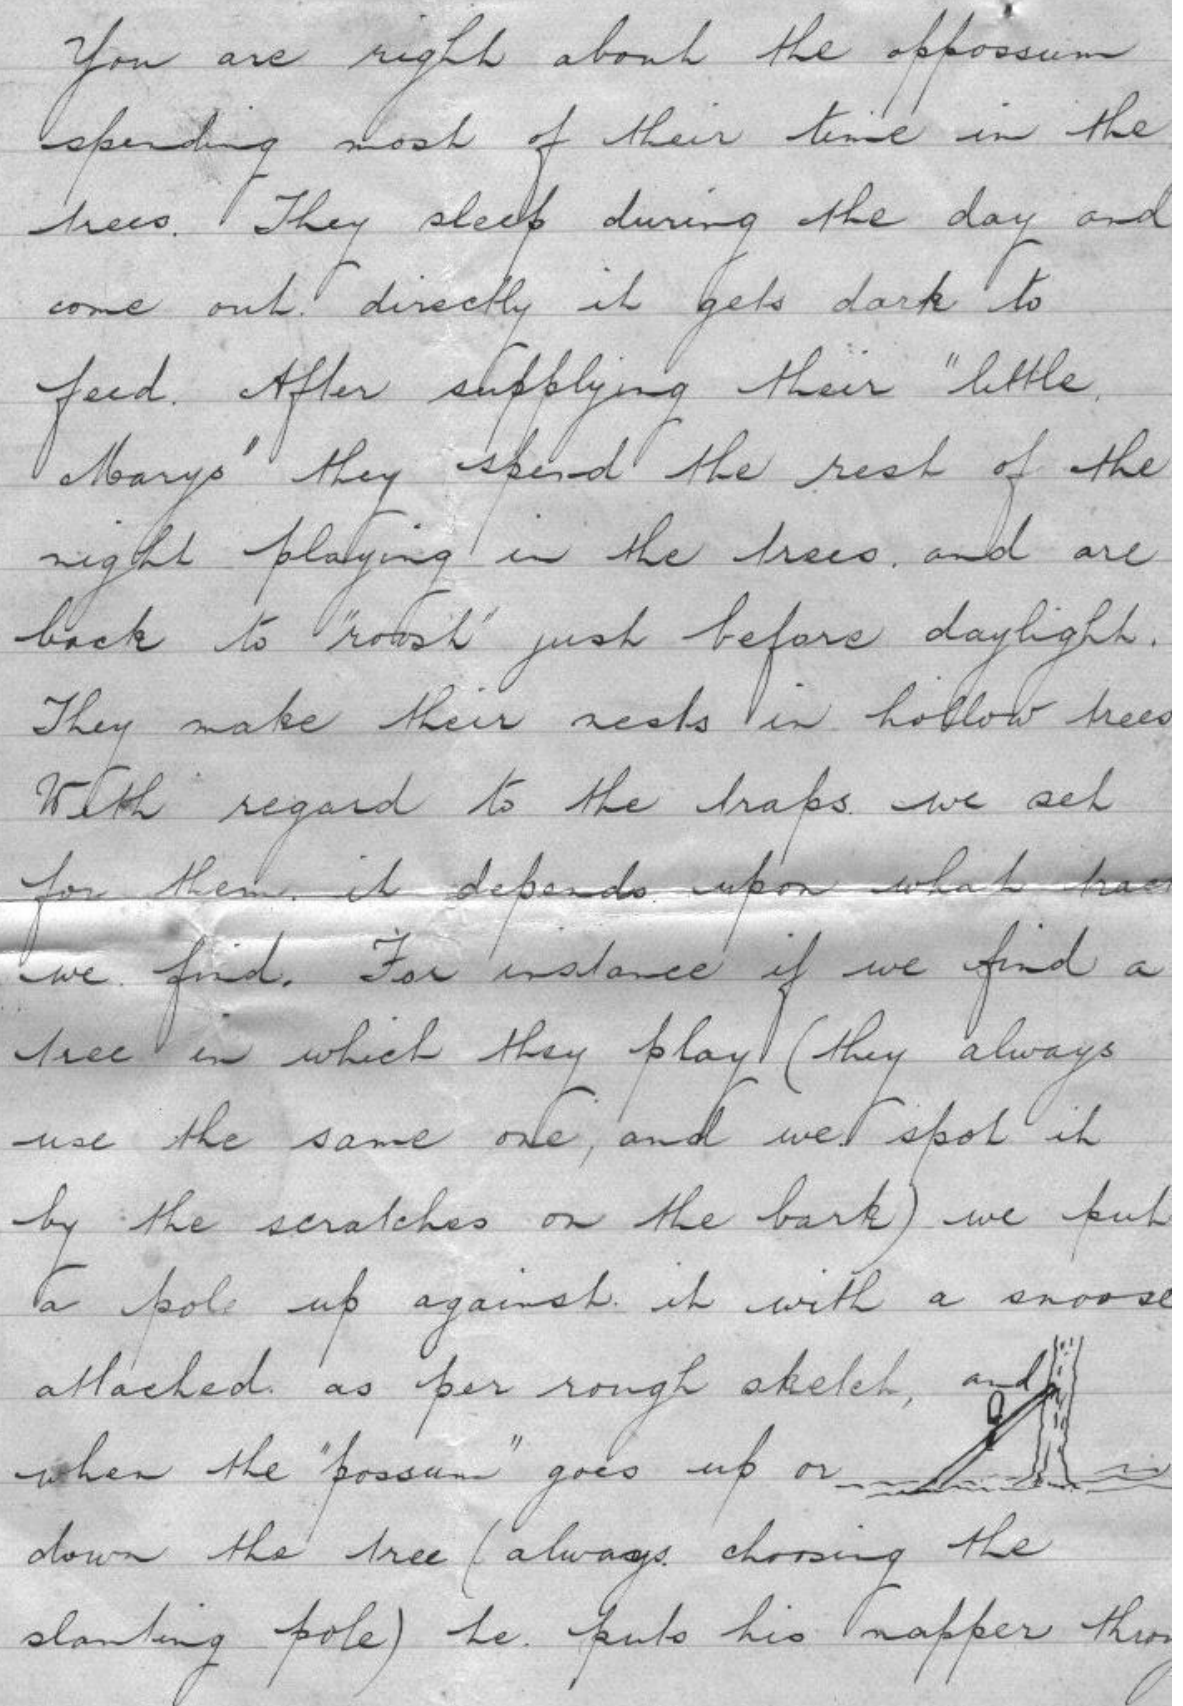 You are right about the oppossum
spending most of their time in the
trees. They sleep during the day and
come out. directly it gets dark to
feed. After supplying their "little.
Marys" they spend the rest of the
night playing in the trees. and are
back to "roost" just before daylight.
They make their nests in hollow trees
With regard to the traps. we set
for them. it depends upon what
we find. For instance if we find a
tree in which they play (they always
use the same one, and we spot it
by the scratches on the bark) we put
a pole up against it with a snoose
attached. as per rough sketch, and
when the "possum" goes up or
down the tree (always choosing the
slanting pole) he. puts his napper